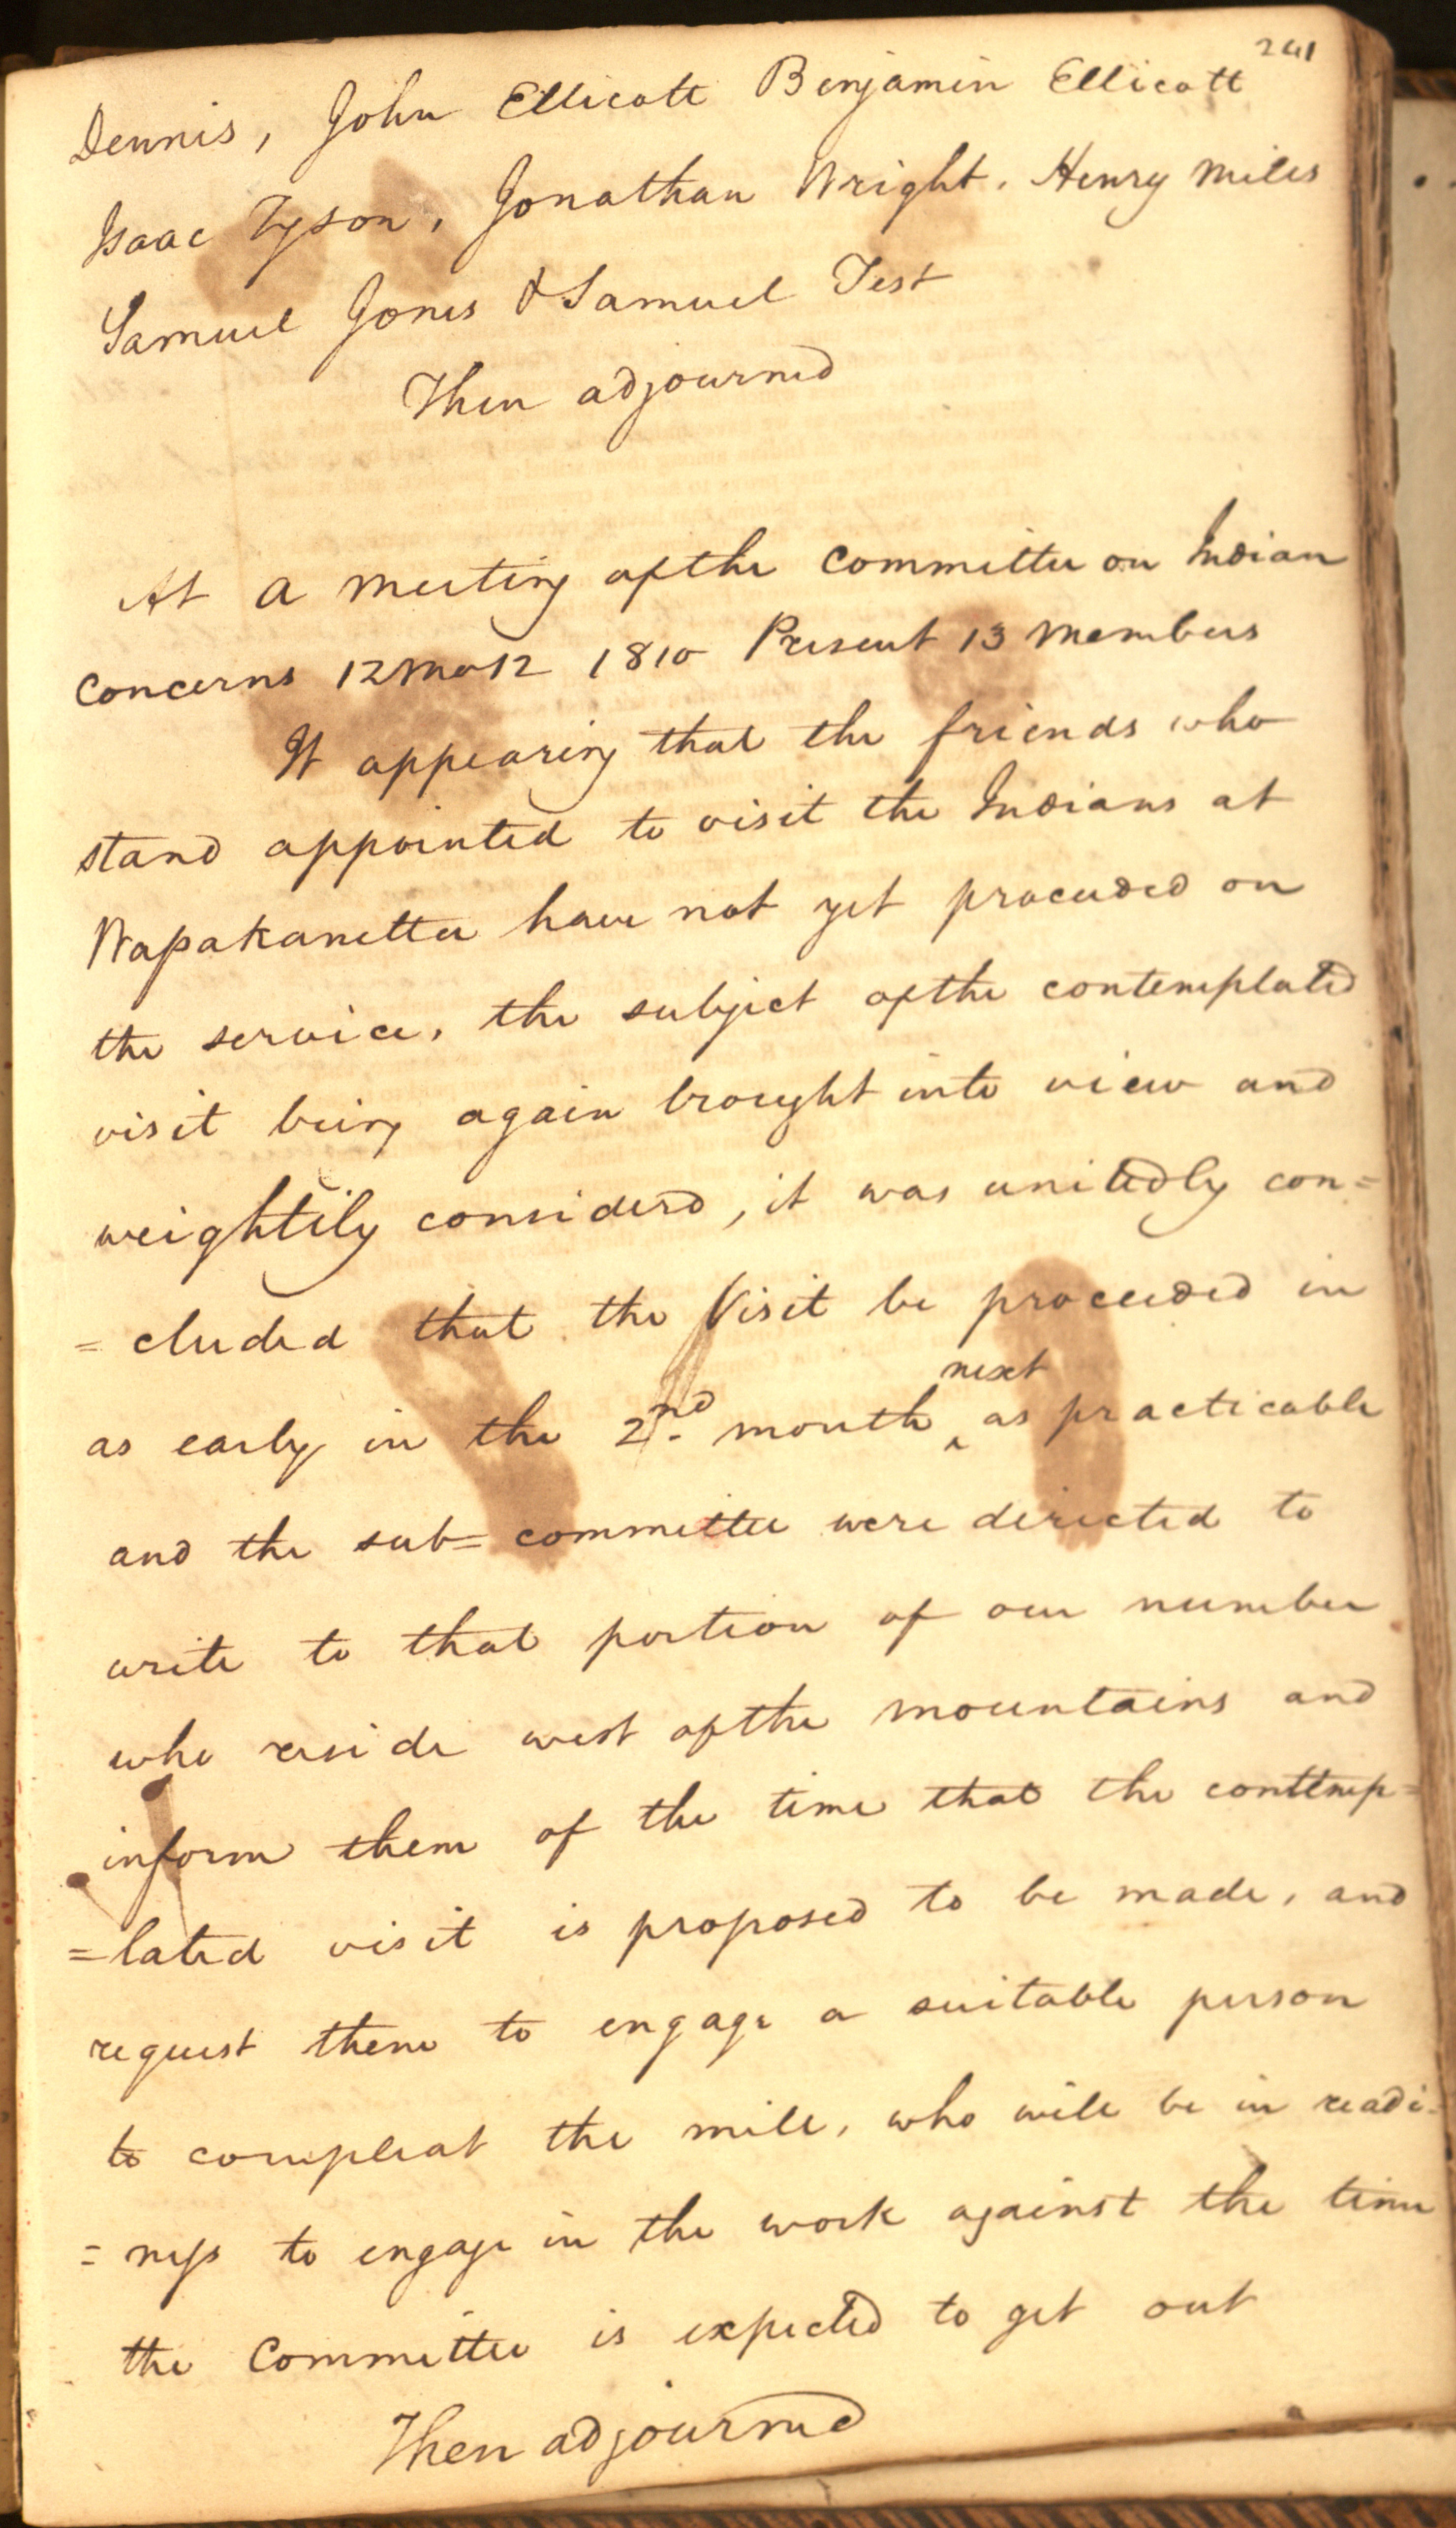 241
Dennis, John Ellicott Benjamin Ellicott
Isaac Tyson, Jonathan Wright. Henry Miles
Samuel Jones & Samuel Test
Then adjourned
At a meeting of the Committee on Indian
Concerns 12 mo 12 1810 Present 13 Members
It appearing that the friends who
stand appointed to visit the Indians at
Wapakanetta have not yet proceeded on
the service, the subject of the contemplated
visit being again brought into view and
weightily considerd, it was unitedly con=
=cluded that the Visit be proceeded in
as early in the 2nd. month next as practicable
and the sub=committee were directed to
write to that portion of our number
who reside west of the mountains and
inform them of the time that the contemp=
=lated visit is proposed to be made, and
request them to engage a suitable person
to compleat the mill, who will be in readi=
=ness to engage in the work against the time
the Committee is expected to get out
Then adjourned